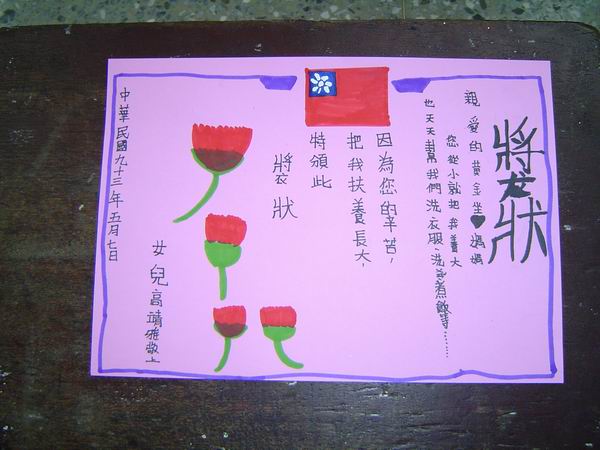 獎狀
親愛的黃金坐♥媽媽
您從小就把我養大
也天天幫我們洗衣服、洗煮飯等……
因為您的辛苦，
把我扶養長大，
特頒此
獎狀
女兒高靖雅敬上
中華民國九十三年五月七日